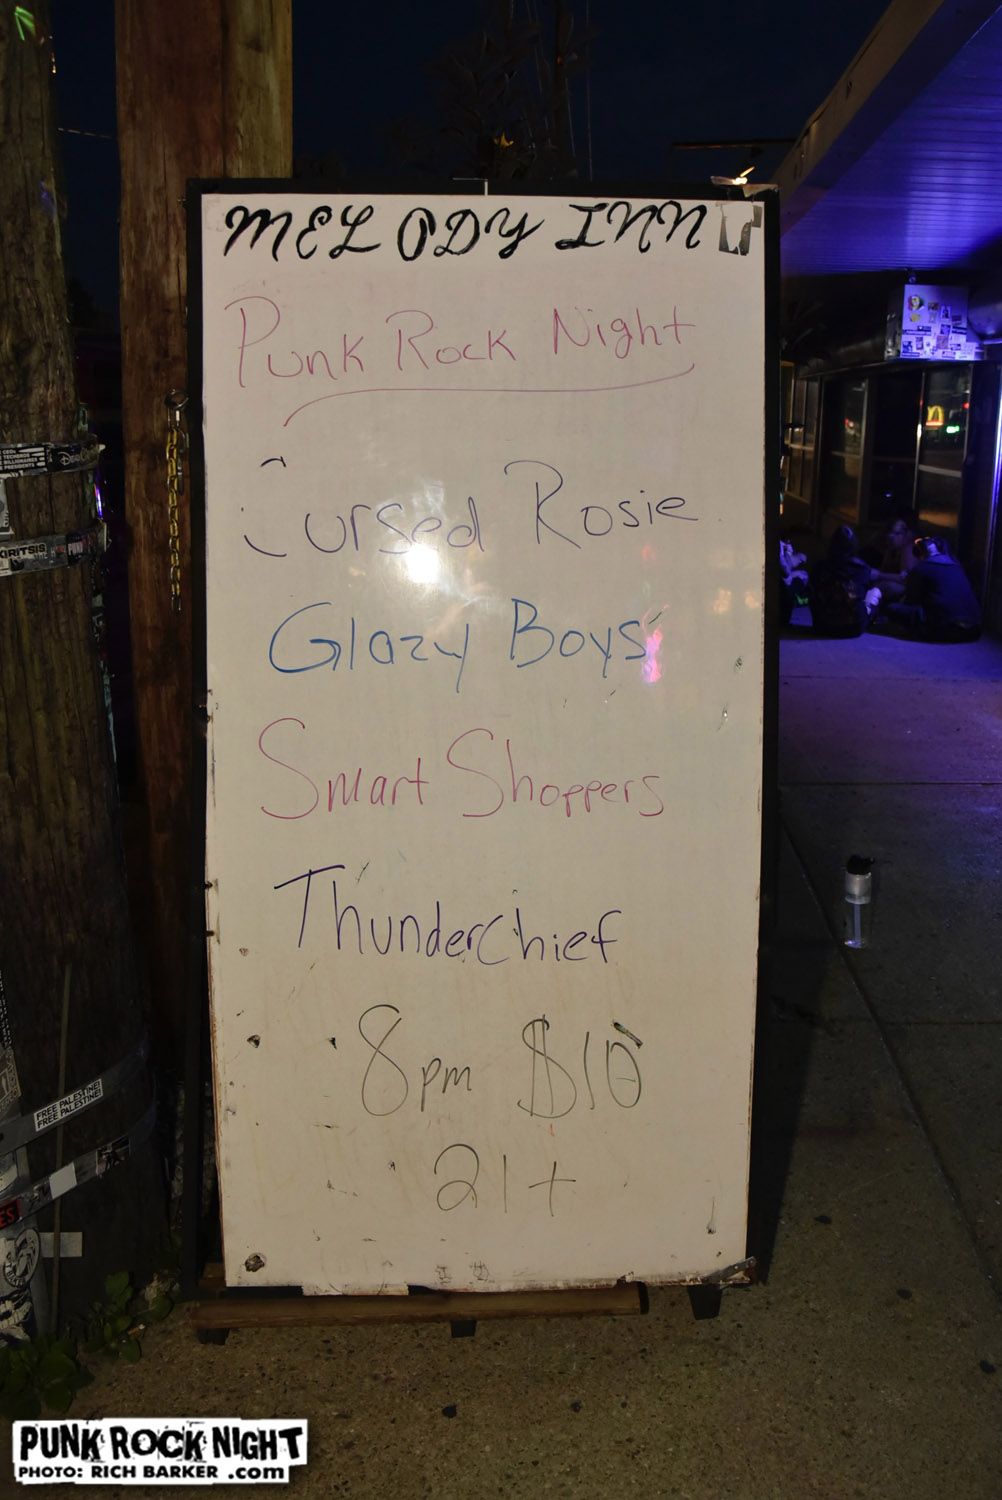 MELODY INN
Punk Rock Night
Cursed Rosie
Glazy Boys
Smart Shoppers
Thunderchief
8pm $10
21+
KIRITSIS
FREE PALESTINE
FREE PALESTINE
PUNK ROCK NIGHT
PHOTO: RICH BARKER .com